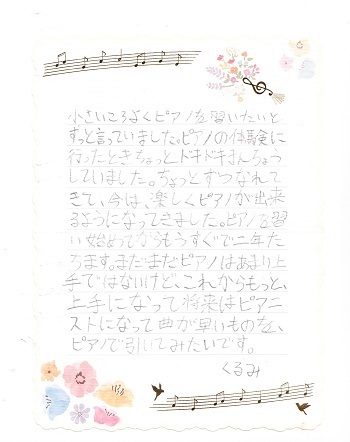 小さいころよくピアノを習いたいと
ずっと言っていました。ピアノの体験に
行ったときちょっとドキドキきんちょう
していました。ちょっとずつなれて
きて、今は、楽しくピアノが出来
るようになってきました。ピアノを習
い始めてからもうすぐで二年た
ちます。まだまだピアノはあまり上
手ではないけど、これからもっと、
上手になって将来はピアニ
ストになって曲が早いものを、
ピアノで引いてみたいです。
くるみ